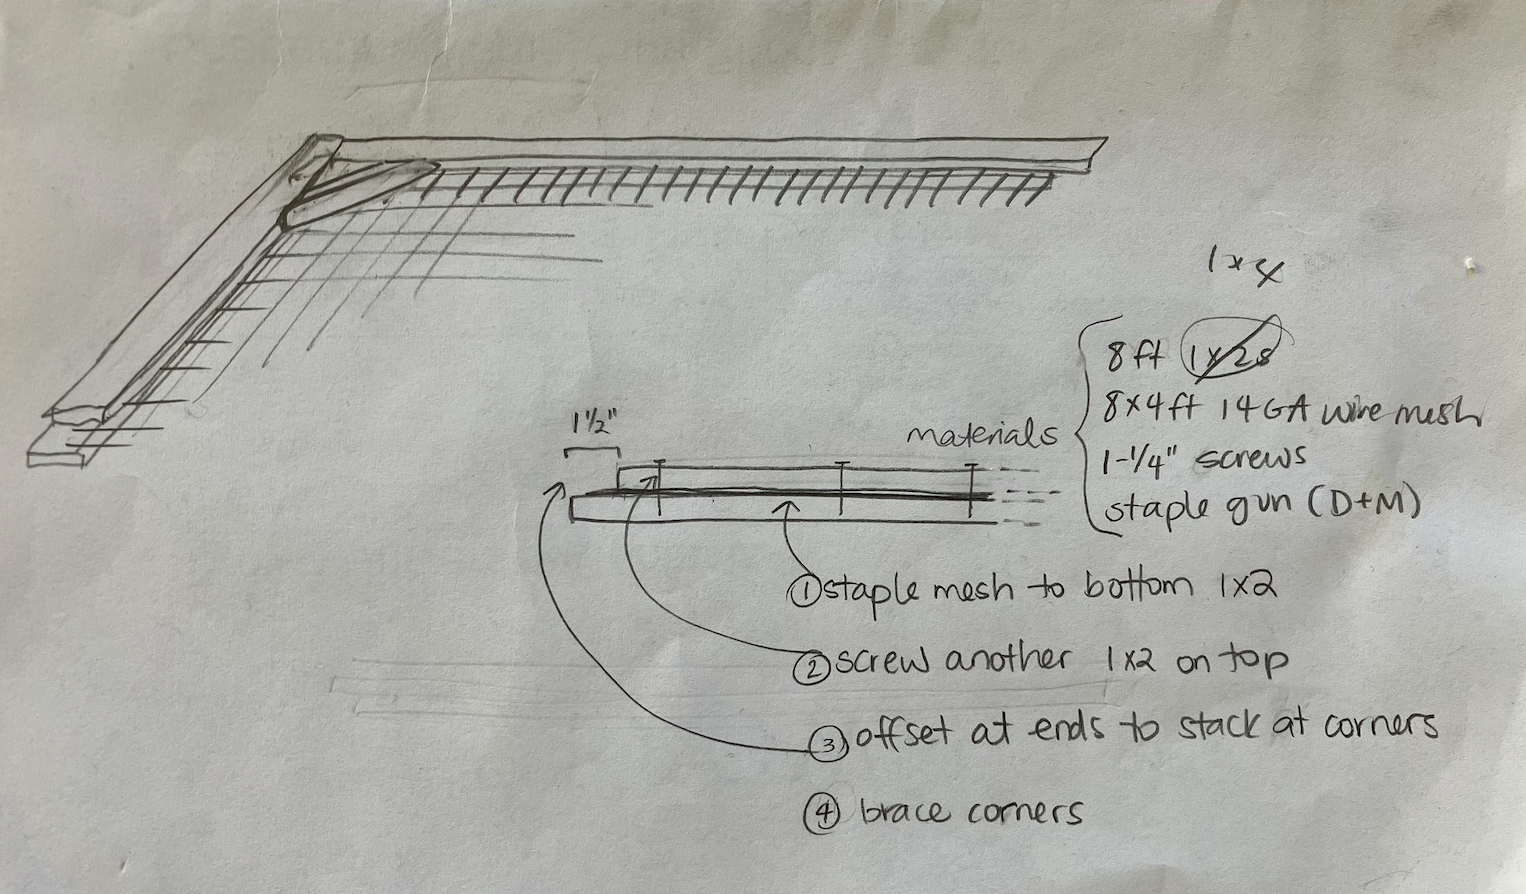 1x4
8ft 1x2s
8x4ft 14GA wire mesh
1-1/4" screws
staple gun (D+M)
materials
1½"
① staple mesh to bottom 1x2
② screw another 1x2 on top
③ offset at ends to stack at corners
④ brace corners